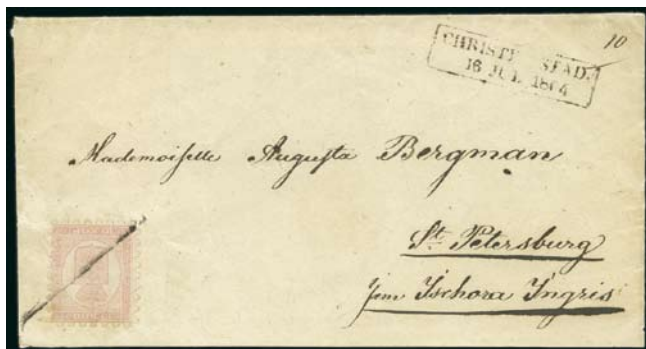 10
16 JUL 1864
Mademoiselle Augusta Bergman
St. Petersburg
Ischora Ingris